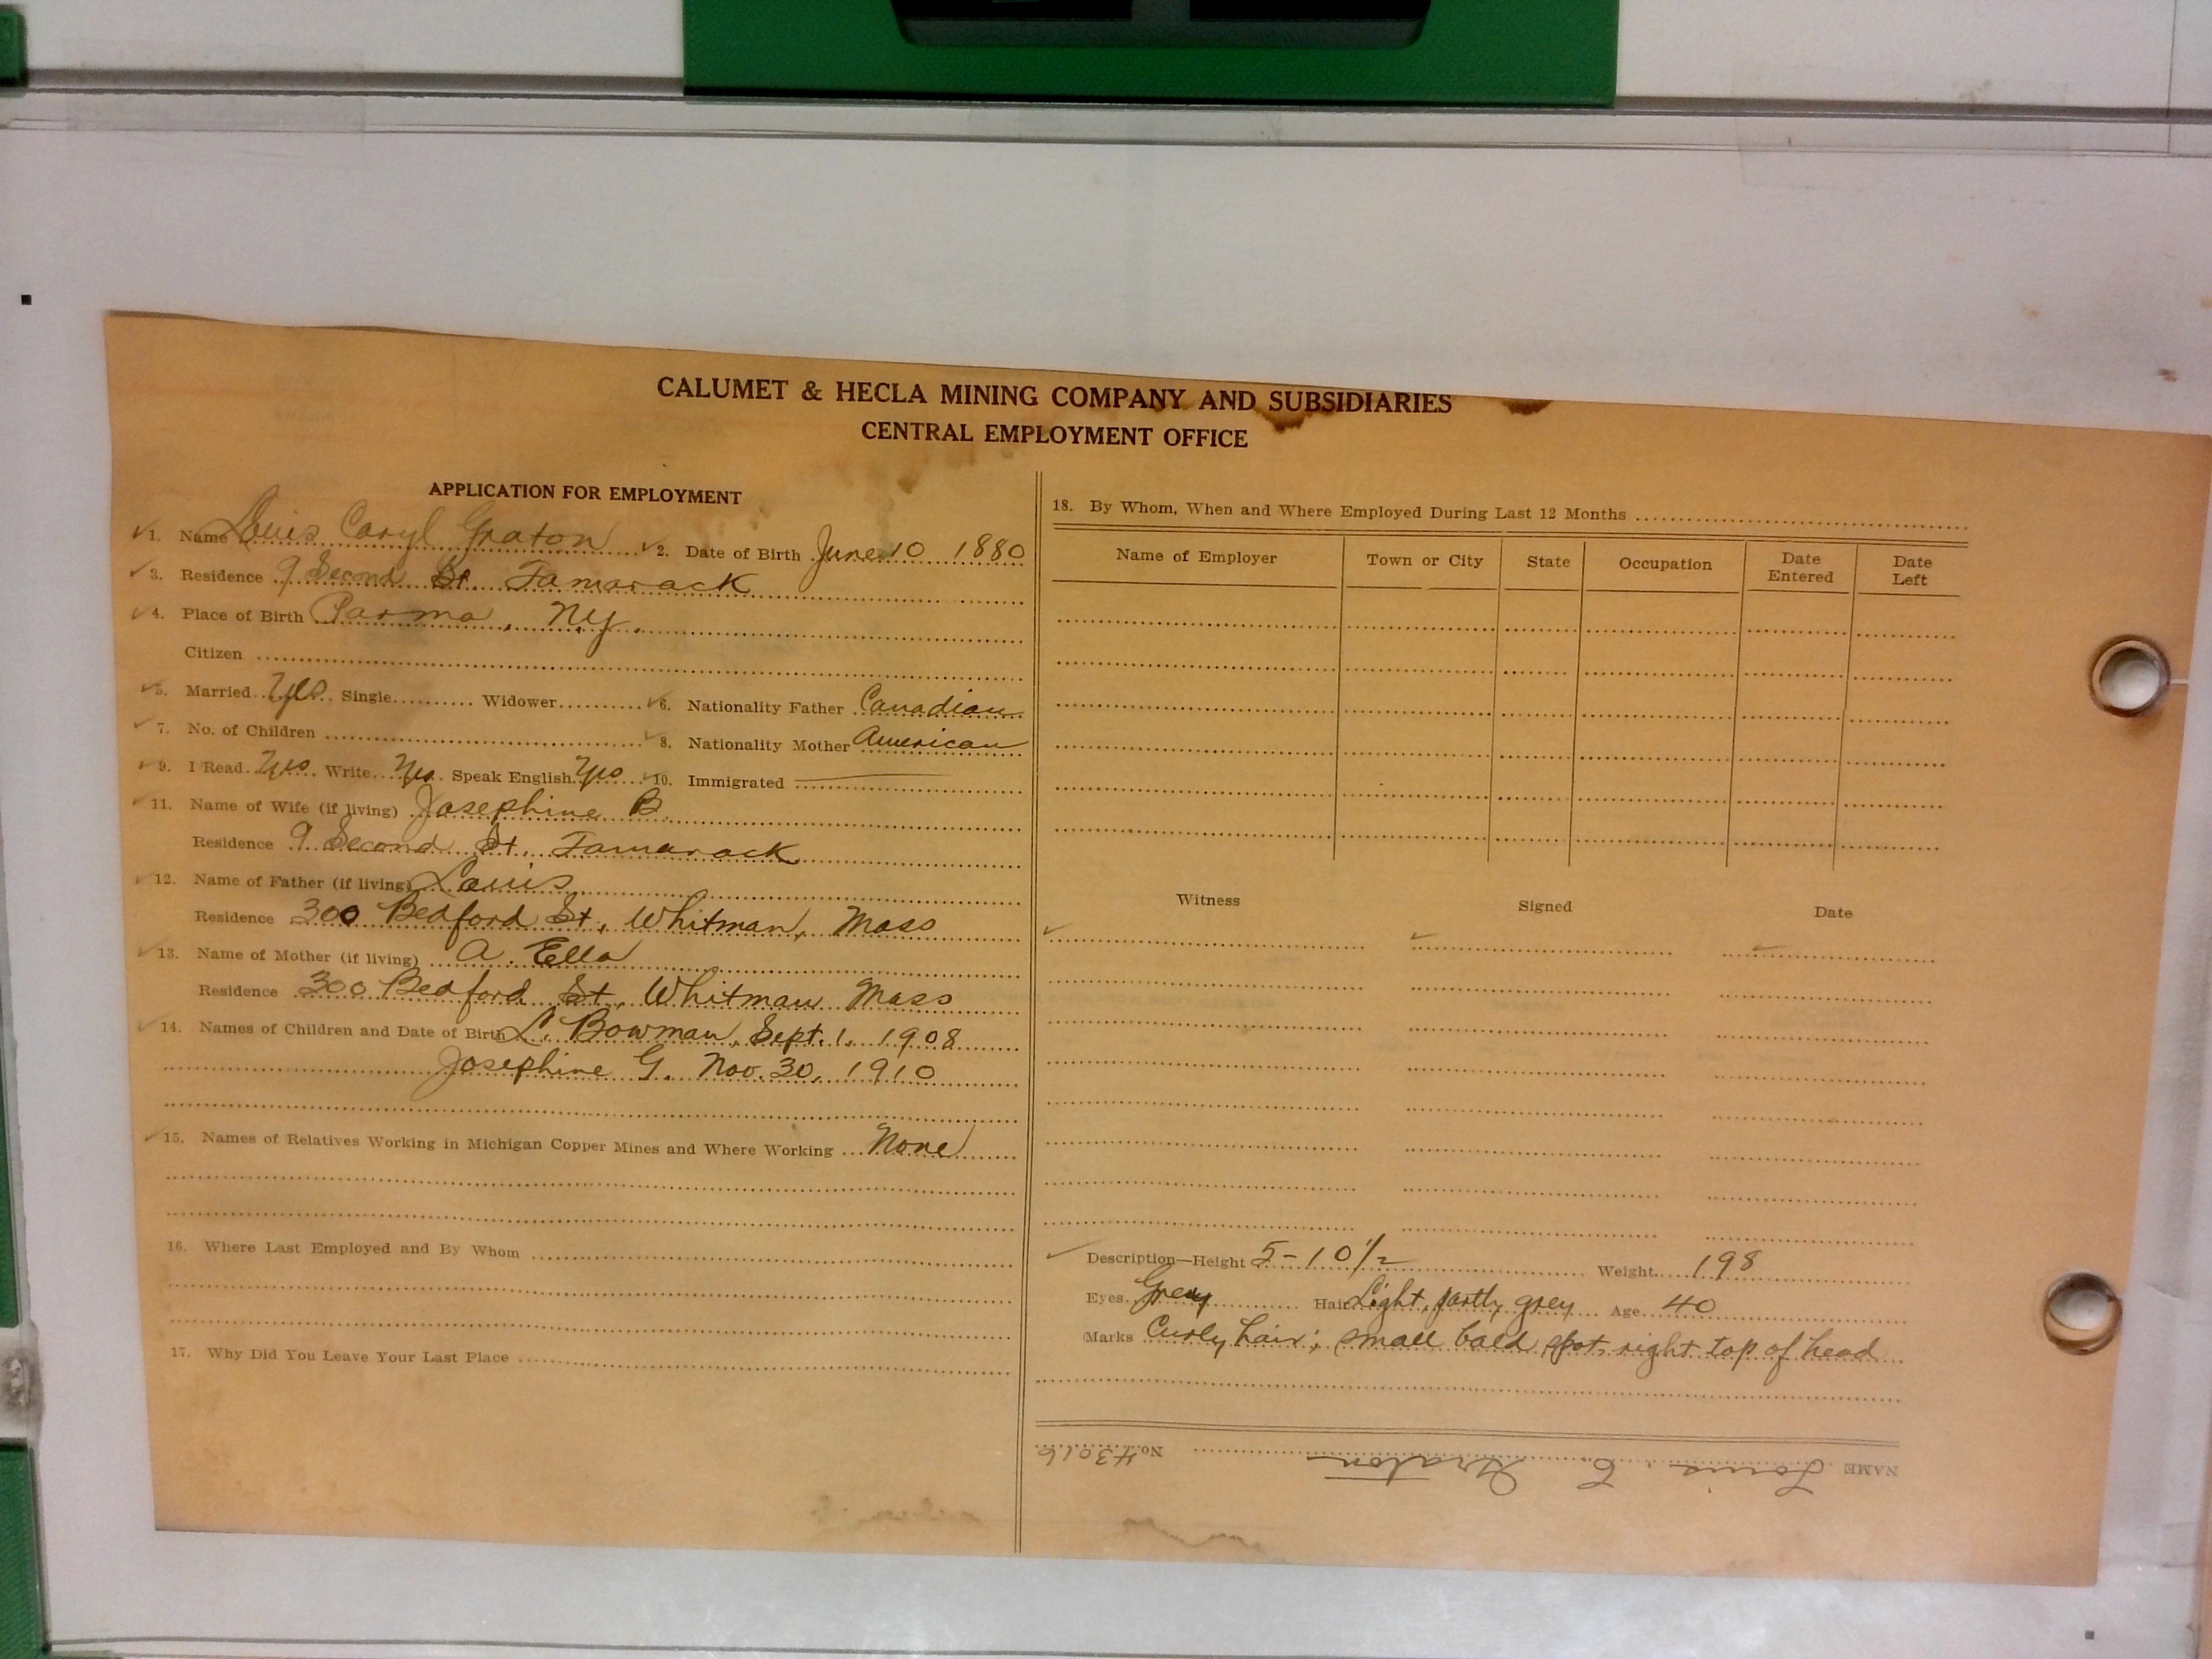 CALUMET & HECLA MINING COMPANY AND SUBSIDIARIES
CENTRAL EMPLOYMENT OFFICE
APPLICATION FOR EMPLOYMENT
1. Name Louis Caryl Graton 2. Date of Birth June 10 1880
3. Residence 9 Second St. Tamarack
4. Place of Birth Parma, NY.
Citizen
5. Married Yes Single Widower 6. Nationality Father Canadian
7. No. of Children 8. Nationality Mother American
9. I Read Yes Write Yes Speak English Yes 10. Immigrated
11. Name of Wife (if living) Josephine B.
Residence 9 Second St. Tamarack
12. Name of Father (if living) Louis
Residence 300 Bedford St., Whitman, Mass
13. Name of Mother (if living) A. Ella
Residence 300 Bedford St., Whitman Mass
14. Names of Children and Date of Birth L. Bowman, Sept. 1, 1908
Josephine G. Nov. 30, 1910
15. Names of Relatives Working in Michigan Copper Mines and Where Working None
16. Where Last Employed and By Whom
17. Why Did You Leave Your Last Place
18. By Whom, When and Where Employed During Last 12 Months
Name of Employer Town or City State Occupation Date Entered Date Left
Witness Signed Date
Description—Height 5-10 1/2 Weight 198
Eyes Grey Hair Light, partly grey Age 40
Marks Curly hair; small bald spot, right top of head
NAME Louis C. Graton No. 43016